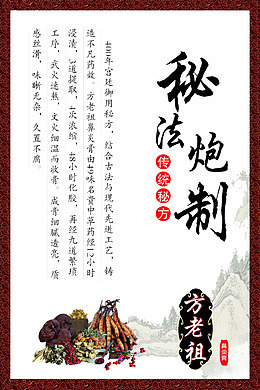 秘法炮制
传统秘方
400年宫廷御用秘方，结合古法与现代先进工艺，铸
造不凡药效。方老祖鼻炎膏由49味名贵中草药经12小时
浸渍，3道提取，4次浓缩，48小时化胶，再经九道繁琐
工序，武火速熬，文火细温而收膏。成膏细腻透亮，质
感丝滑，味晰无杂，久置不腐。
方老祖